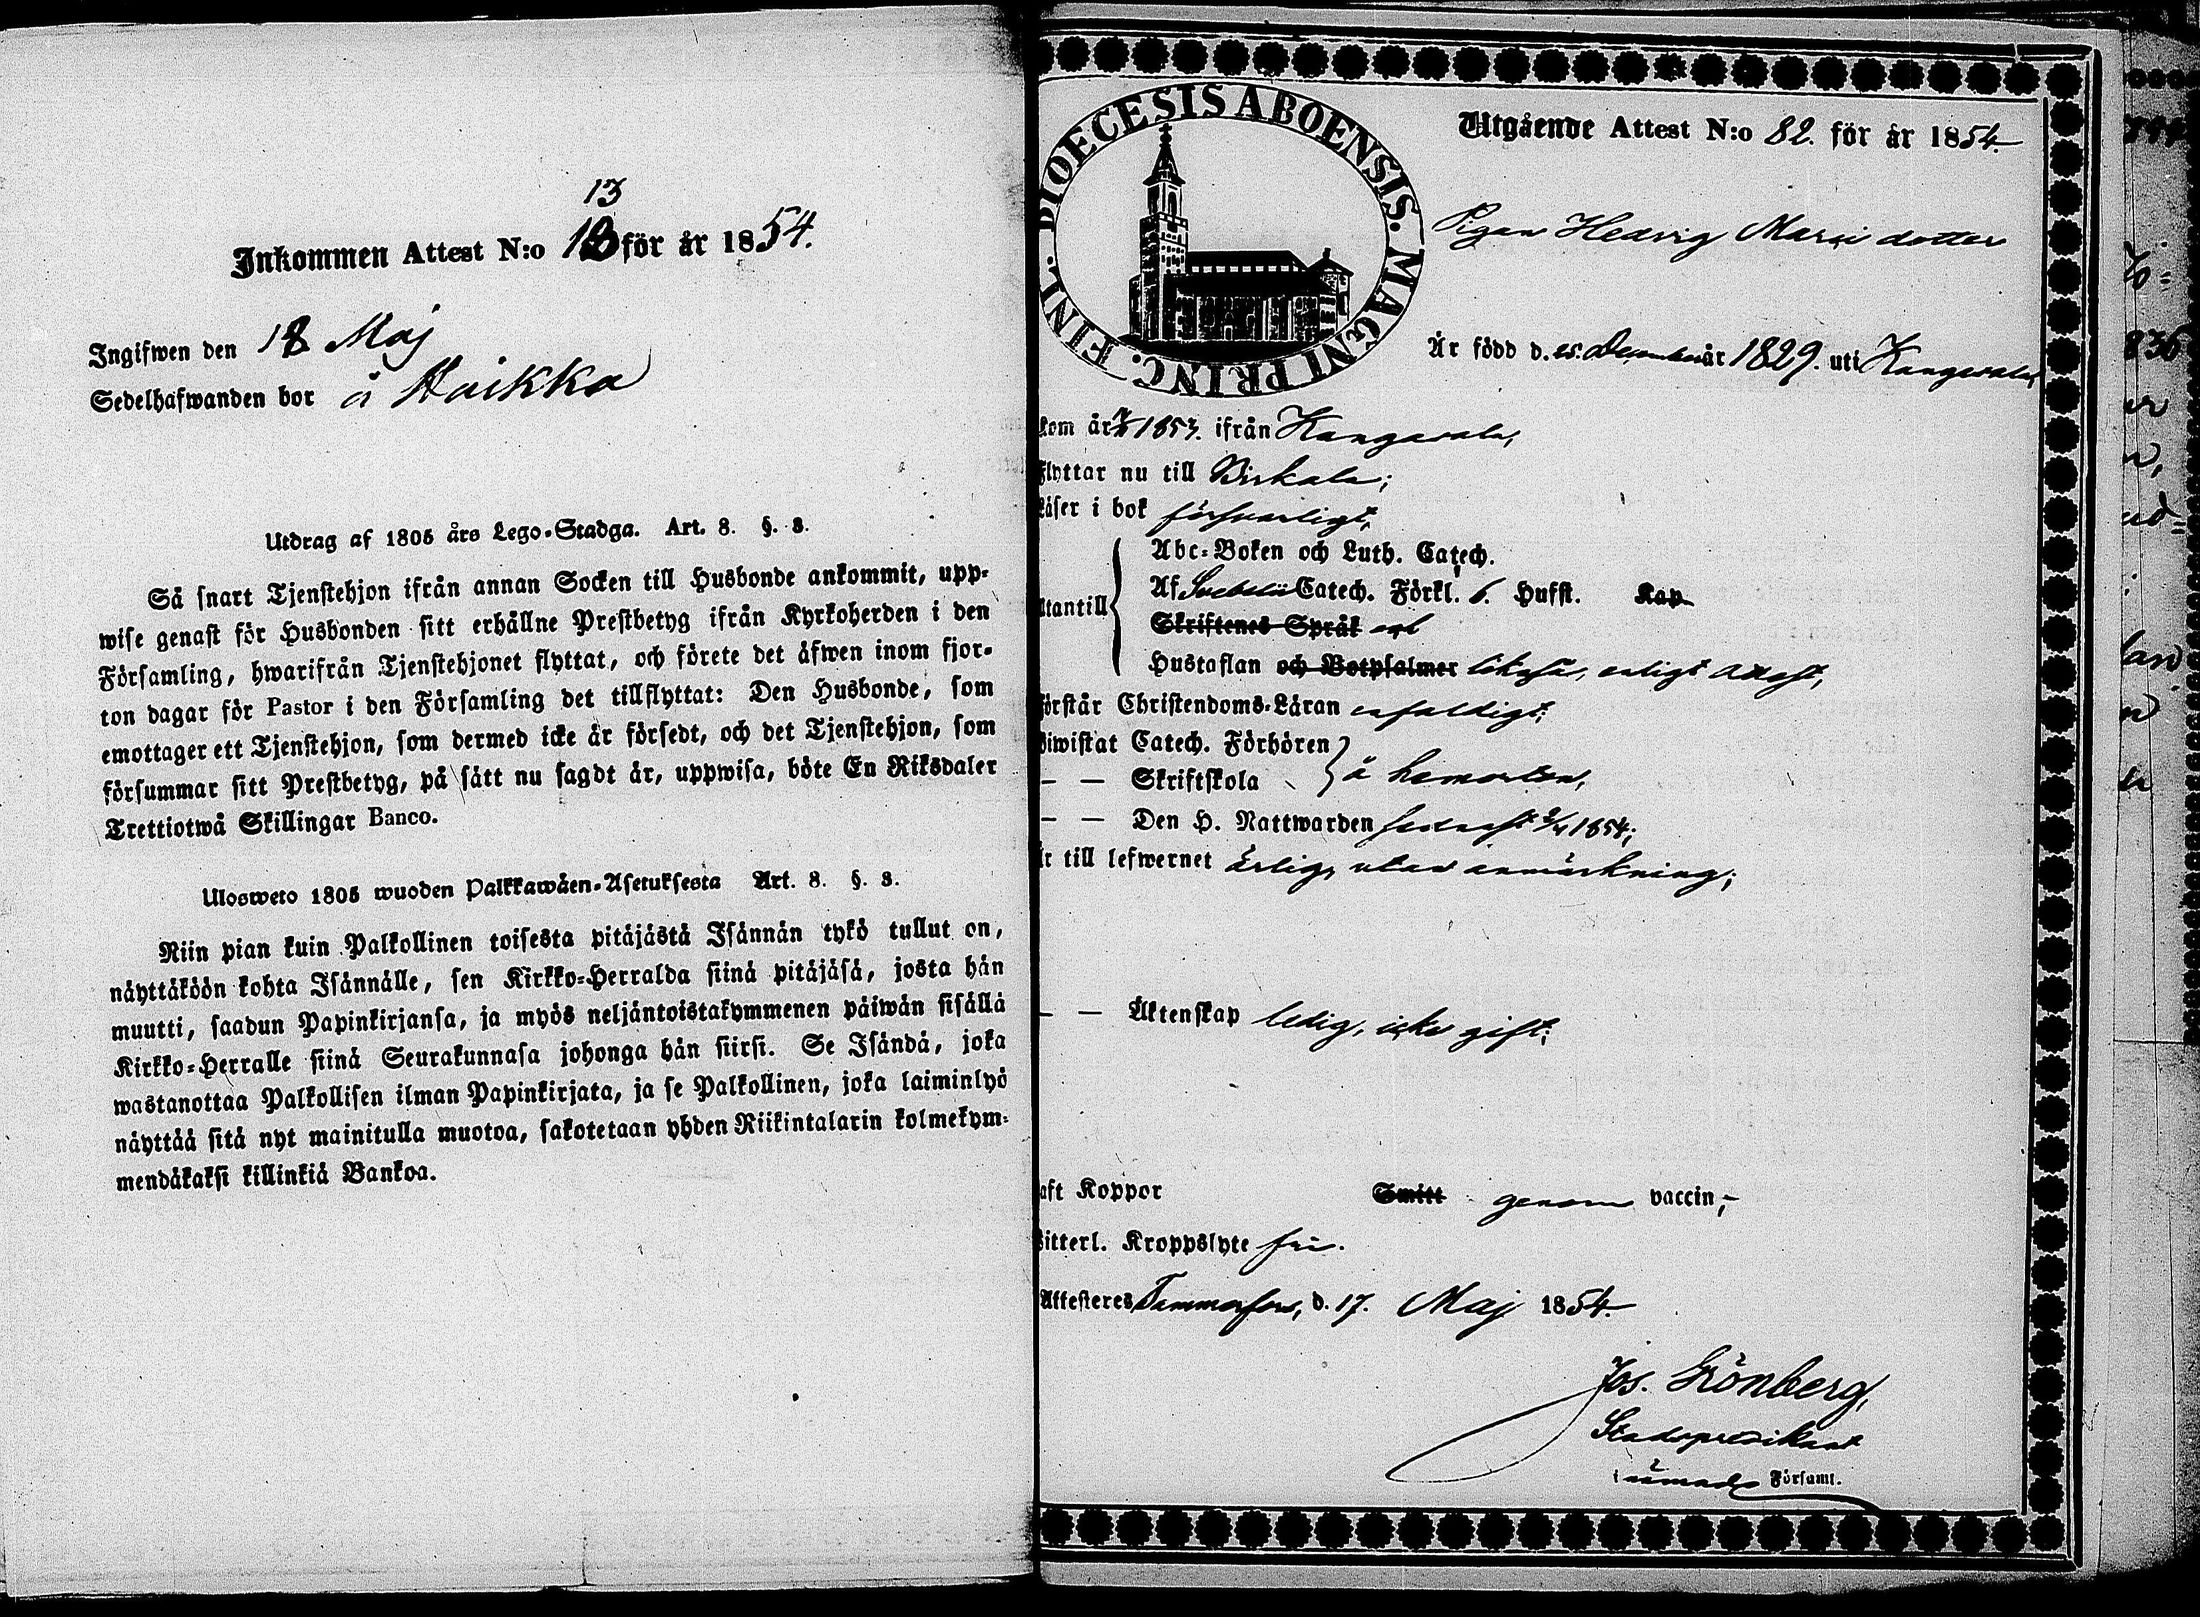 13
Inkommen Attest N:o 13 för år 1854.
Ingifwen den 18 Maj
Sedelhafwanden bor å Haikka
Utdrag af 1805 års Lego-Stadga. Art. 8. §. 3.
Så snart Tjenstehjon ifrån annan Socken till Husbonde ankommit, upp-
wise genast för Husbonden sitt erhållne Prestbetyg ifrån Kyrkoherden i den
Församling, hwarifrån Tjenstehjonet flyttat, och förete det äfwen inom fjor-
ton dagar för Pastor i den Församling det tillflyttat: Den Husbonde, som
emottager ett Tjenstehjon, som dermed icke är försedt, och det Tjenstehjon, som
försummar sitt Prestbetyg, på sätt nu sagdt är, uppwisa, böte En Riksdaler
Trettiotwå Skillingar Banco.
Ulosweto 1805 wuoden Palkkawäen-Asetuksesta Art. 8. §. 3.
Niin pian kuin Palkollinen toisesta pitäjästä Isännän tykö tullut on,
näyttäköön kohta Isännälle, sen Kirkko-Herralda siinä pitäjäsä, josta hän
muutti, saadun Papinkirjansa, ja myös neljäntoistakymmenen päiwän sisällä
Kirkko-Herralle siinä Seurakunnasa johonga hän siirsi. Se Isändä, joka
wastanottaa Palkollisen ilman Papinkirjata, ja se Palkollinen, joka laiminlyö
näyttää sitä nyt mainitulla muotoa, sakotetaan yhden Riikintalarin kolmekym-
mendäkaksi killinkiä Bankoa.
DIOECESIS ABOENSIS. MAGNI PRINC. FINL.
Utgående Attest N:o 82. för år 1854.
Pigan Hedvig Marci dotter
Är född d. 25. December år 1829. uti Kangasala,
kom år 1853. ifrån Kangasala,
flyttar nu till Birkala;
läser i bok försvarligt,
Abc-Boken och Luth. Catech.
utantill Af Svebelii Catech. Förkl. 6. Hufst. Kap
Skriftenes Språk och
Hustaflan och Botpsalmer likaså, enligt attest,
förstår Christendoms-Läran enfaldigt;
biwistat Catech. Förhören
— — Skriftskola å hemorten,
— — Den H. Nattwarden sednast 2/4 1854;
är till lefwernet ärlig, utan anmärkning;
— — Äktenskap ledig, icke gift;
haft Koppor Smitt genom vaccin,-
Witterl. Kroppslyte fri.
Attesteres Tammerfors, d. 17. Maj 1854.
Jos. Grönberg,
Stadspredikant
i nämnde Församl.